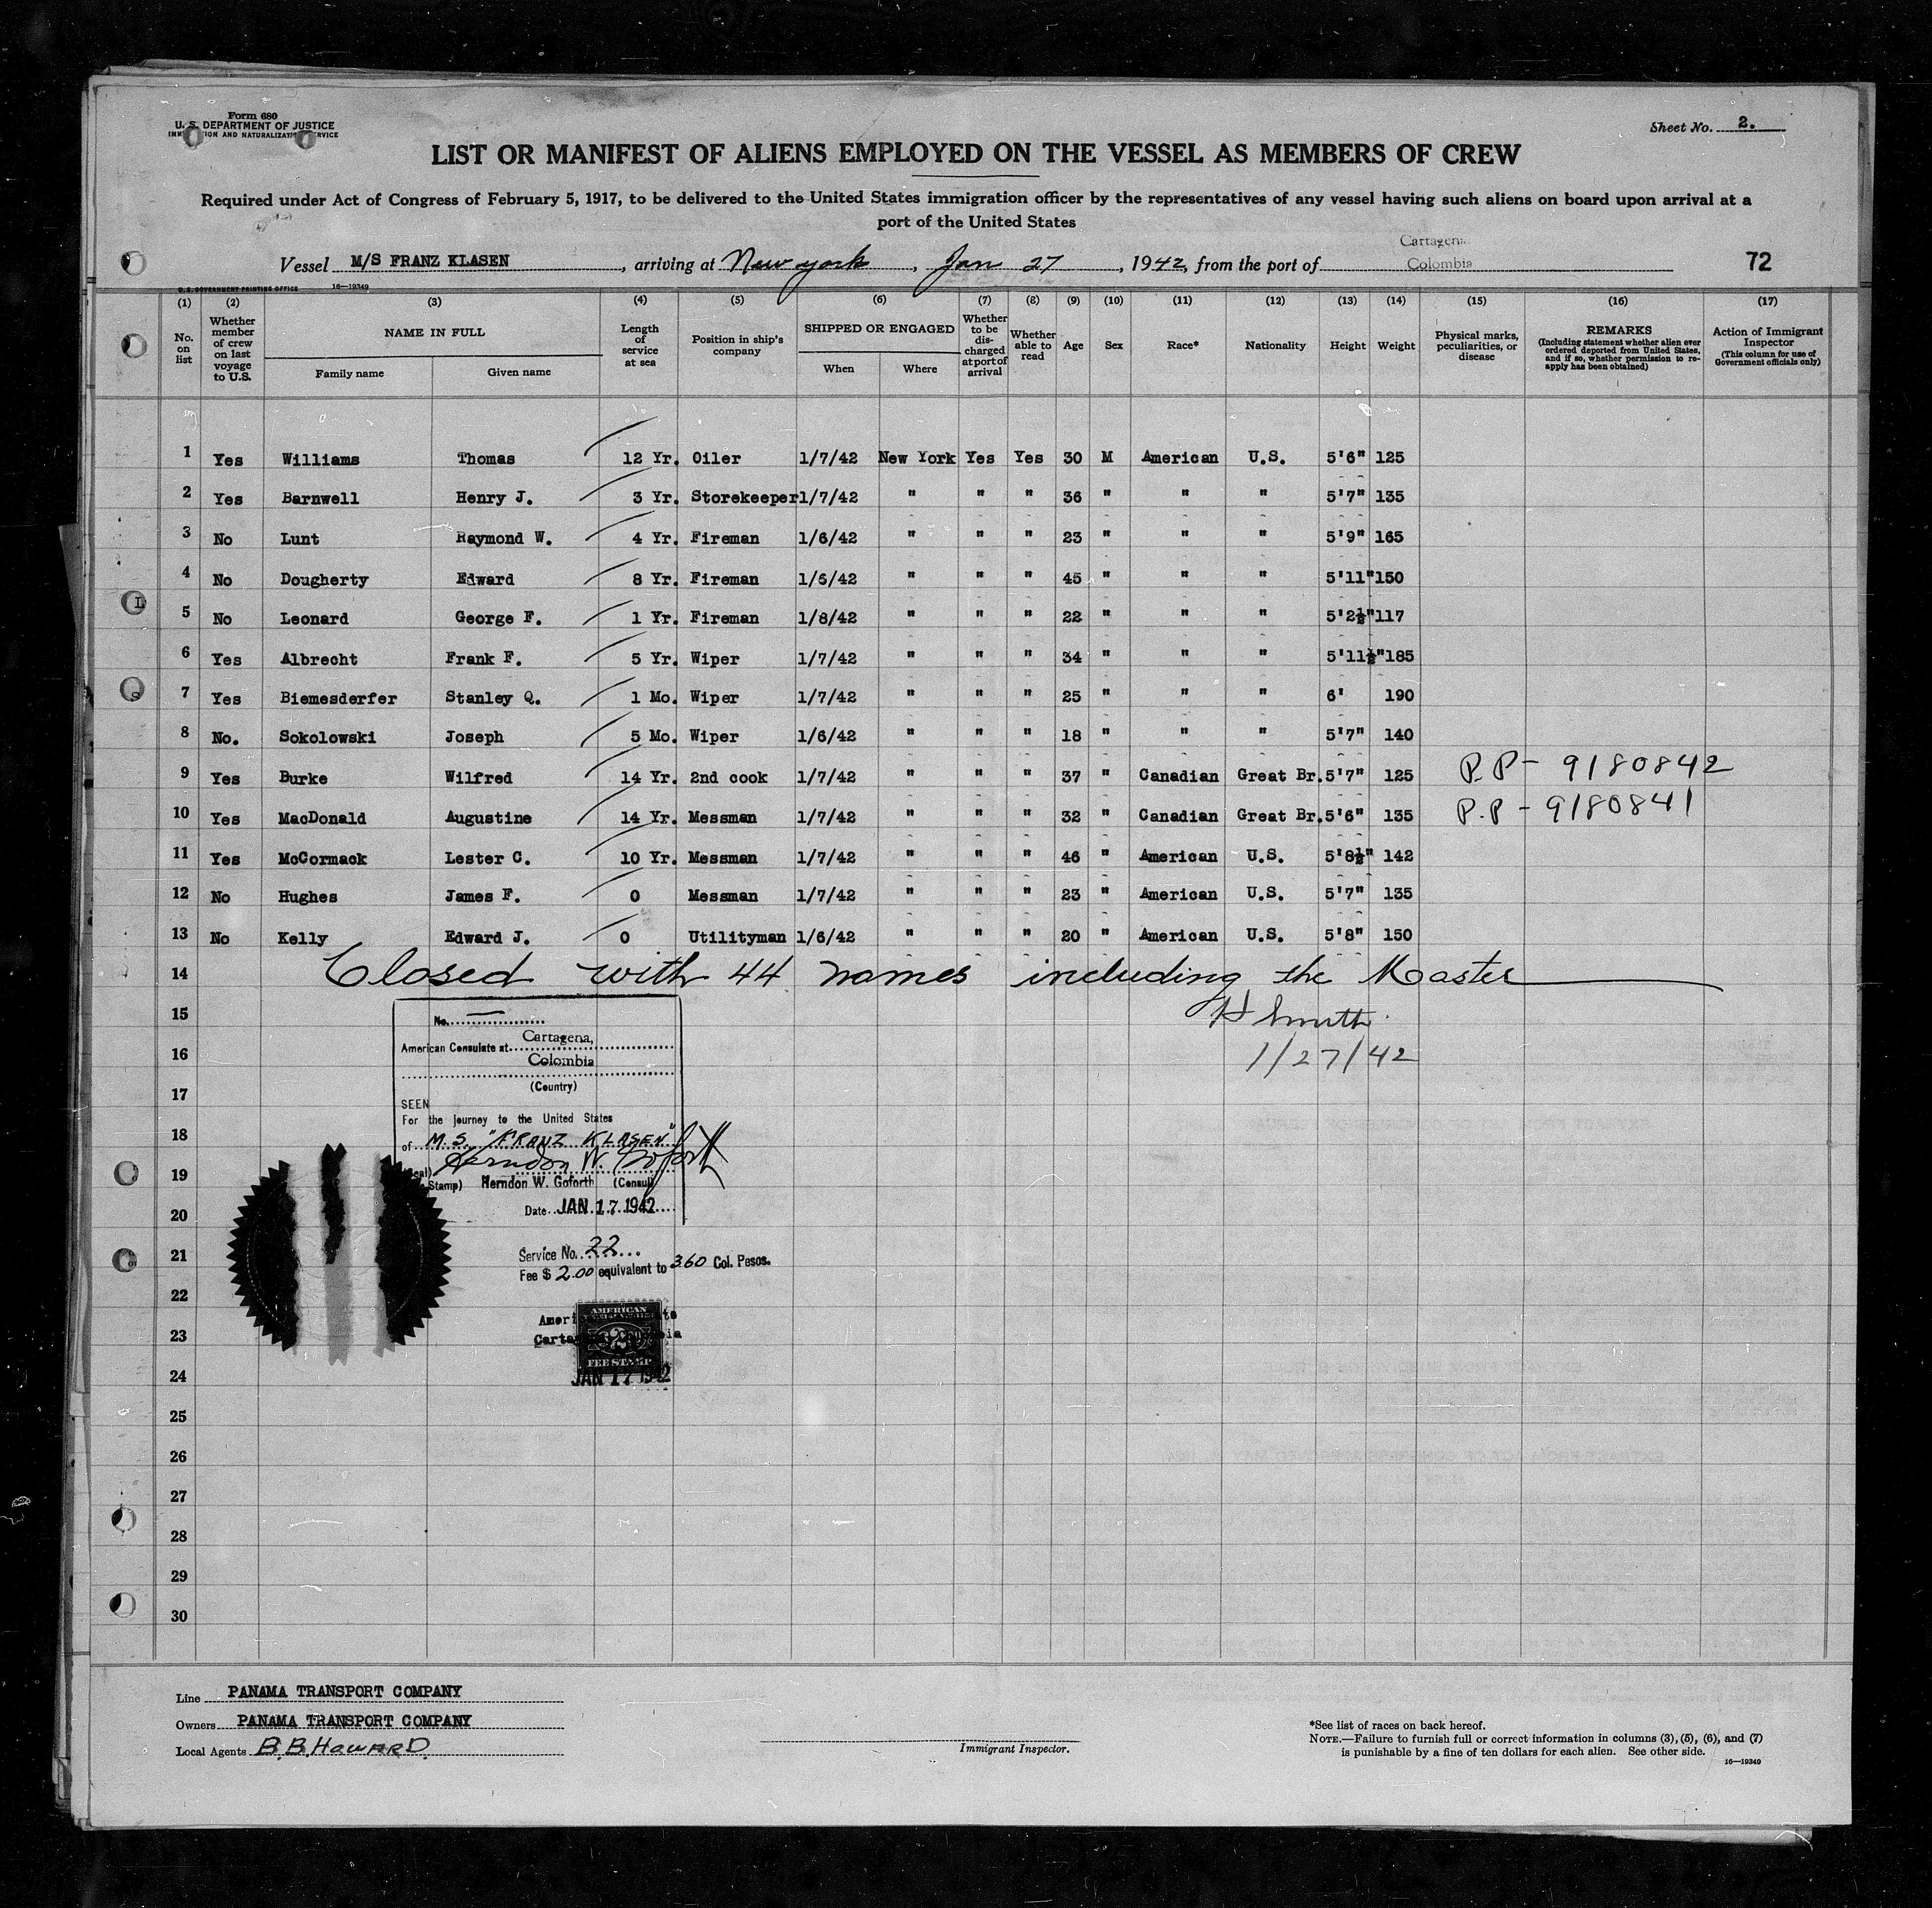 Form 680
U. S. DEPARTMENT OF JUSTICE
Sheet No. 2.
LIST OR MANIFEST OF ALIENS EMPLOYED ON THE VESSEL AS MEMBERS OF CREW
Required under Act of Congress of February 5, 1917, to be delivered to the United States immigration officer by the representatives of any vessel having such aliens on board upon arrival at a
port of the United States
Vessel M/S FRANZ KLASEN, arriving at New York, Jan 27, 1942, from the port of Cartagena Colombia 72
U. S. GOVERNMENT PRINTING OFFICE 16—19349
(1) (2) (3) (4) (5) (6) (7) (8) (9) (10) (11) (12) (13) (14) (15) (16) (17)
No. on list
Whether member of crew on last voyage to U.S.
NAME IN FULL
Family name Given name
Length of service at sea
Position in ship's company
SHIPPED OR ENGAGED
When Where
Whether to be discharged at port of arrival
Whether able to read
Age
Sex
Race*
Nationality
Height
Weight
Physical marks, peculiarities, or disease
REMARKS
(Including statement whether alien ever ordered deported from United States, and if so, whether permission to re-apply has been obtained)
Action of Immigrant Inspector
(This column for use of Government officials only)
1 Yes Williams Thomas 12 Yr. Oiler 1/7/42 New York Yes Yes 30 M American U.S. 5'6" 125
2 Yes Barnwell Henry J. 3 Yr. Storekeeper 1/7/42 " " " 36 " " " 5'7" 135
3 No Lunt Raymond W. 4 Yr. Fireman 1/6/42 " " " 23 " " " 5'9" 165
4 No Dougherty Edward 8 Yr. Fireman 1/6/42 " " " 45 " " " 5'11" 150
5 No Leonard George F. 1 Yr. Fireman 1/8/42 " " " 22 " " " 5'2½" 117
6 Yes Albrecht Frank F. 5 Yr. Wiper 1/7/42 " " " 34 " " " 5'11½" 185
7 Yes Biemesderfer Stanley Q. 1 Mo. Wiper 1/7/42 " " " 25 " " " 6' 190
8 No. Sokolowski Joseph 5 Mo. Wiper 1/6/42 " " " 18 " " " 5'7" 140
9 Yes Burke Wilfred 14 Yr. 2nd cook 1/7/42 " " " 37 " Canadian Great Br. 5'7" 125 P.P- 9180842
10 Yes MacDonald Augustine 14 Yr. Messman 1/7/42 " " " 32 " Canadian Great Br. 5'6" 135 P.P - 9180841
11 Yes McCormack Lester C. 10 Yr. Messman 1/7/42 " " " 46 " American U.S. 5'8½" 142
12 No Hughes James F. 0 Messman 1/7/42 " " " 23 " American U.S. 5'7" 135
13 No Kelly Edward J. 0 Utilityman 1/6/42 " " " 20 " American U.S. 5'8" 150
14 Closed with 44 names including the Master
15 H Smith
16 1/27/42
17
18
19
20
21
22
23
24
25
26
27
28
29
30
No.
American Consulate at Cartagena,
Colombia
(Country)
SEEN
For the journey to the United States
of M.S. "FRANZ KLASEN"
Herndon W. Goforth
Stamp) Herndon W. Goforth (Consul)
Date JAN 17 1942
Service No. 22
Fee $ 2.00 equivalent to 3.60 Col. Pesos.
AMERICAN
FEE STAMP
JAN 17 1942
Line PANAMA TRANSPORT COMPANY
Owners PANAMA TRANSPORT COMPANY
Local Agents B.B. HOWARD
Immigrant Inspector.
*See list of races on back hereof.
NOTE.—Failure to furnish full or correct information in columns (3), (5), (6), and (7)
is punishable by a fine of ten dollars for each alien. See other side.
16—19349